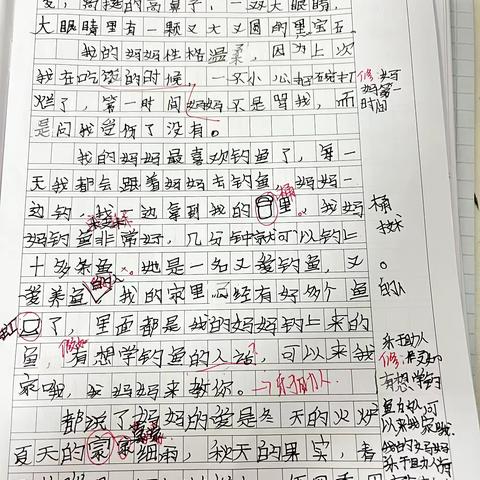 大眼睛里有一颗又大又圆的黑宝石
我的妈妈性格温柔,因为上次
我在吃饭的时候,一不小心把碗打
烂了,第一时间妈妈不是骂我,而
是问我受伤了没有。
我的妈妈最喜欢钓鱼了,每一
天我都会跟着妈妈去钓鱼,妈妈一
边钓,我一边拿到我的桶里。我妈
妈钓鱼非常好,几分钟就可以钓上
十多条鱼。她是一名又爱钓鱼,又
爱养鱼的人,我的家里已经有好多个鱼
缸了,里面都是我的妈妈钓上来的
鱼,有想学钓鱼的人话,可以来我
家哦,我妈妈来教你。→乐于助人
都说了妈妈的爱是冬天的火炉
夏天的蒙蒙细雨,秋天的果实,春
修:妈
妈第一
时间
桶
技术
。
的人
乐于助人
修:
有想学钓
鱼的人可
以来我家哦
我的妈妈
乐于助人